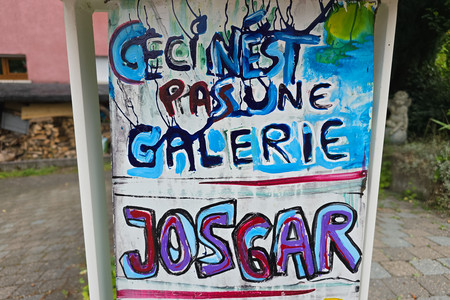 CECI N'EST
PAS UNE
GALERIE
JOSGAR